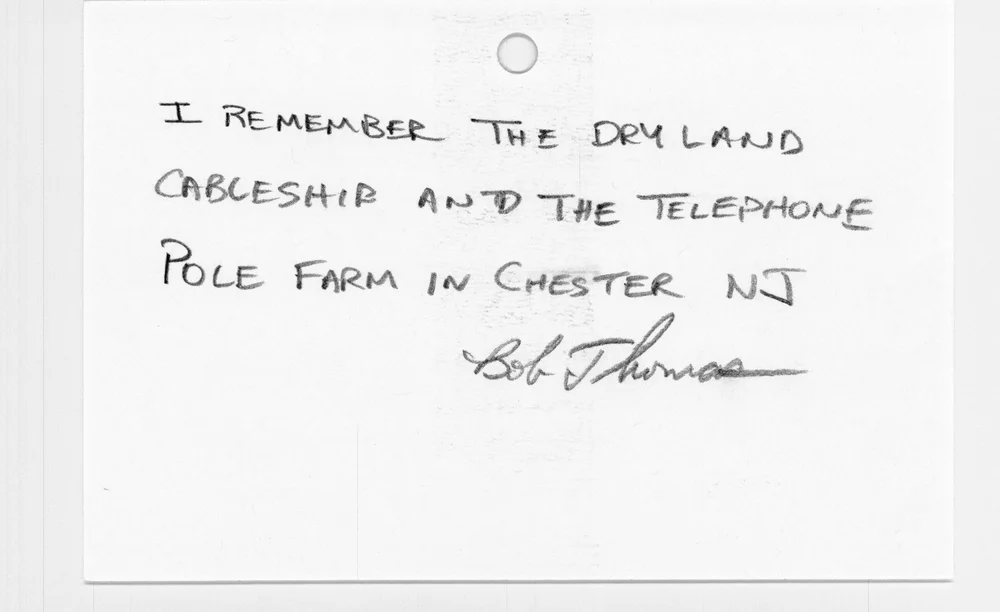 I REMEMBER THE DRY LAND
CABLESHIP AND THE TELEPHONE
POLE FARM IN CHESTER NJ
Bob Thomas